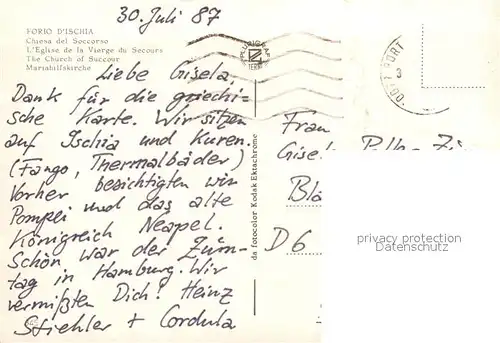 30. Juli 87
FORIO D'ISCHIA
Chiesa del Soccorso
L'Eglise de la Vierge du Secours
The Church of Succour
Mariahilfskirche
Liebe Gisela,
Dank für die griechi-
sche Karte. Wir sitzen
auf Ischia und Kuren.
(Fango, Thermalbäder)
Vorher besichtigten wir
Pompei und das alte
Königreich Neapel.
Schön war der Züm-
tag in Hamburg. Wir
vermißten Dich! Heinz
Stiehler + Cordula
da fotocolor Kodak Ektachrome
PLURIGRAF
TERNI
Frau
D6
privacy protection
Datenschutz